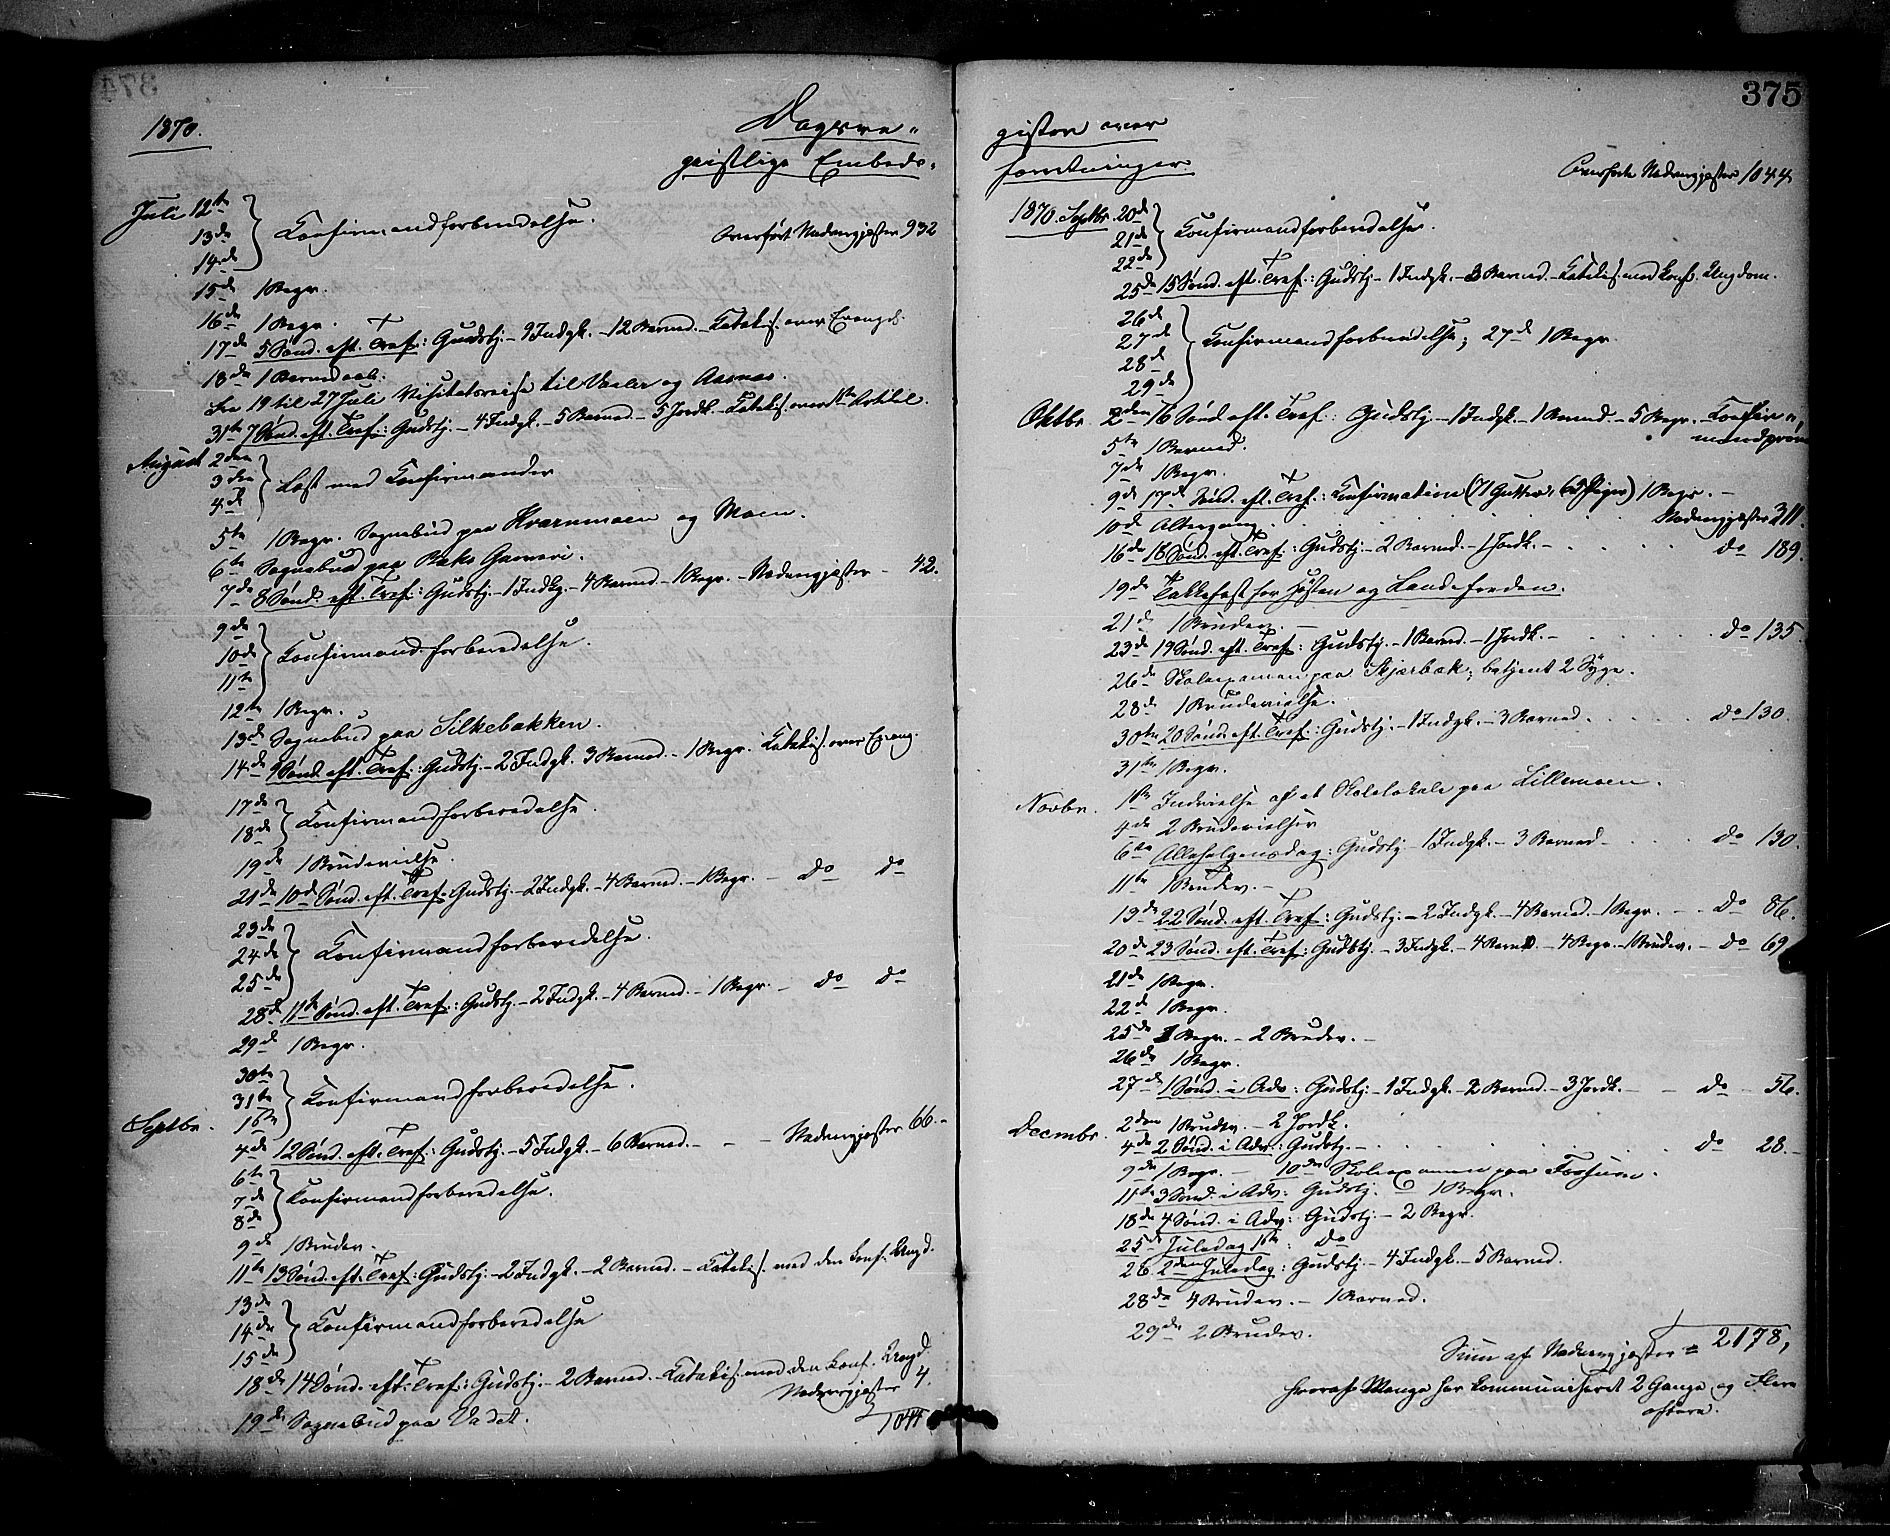 374
1870.
Dagsre-
geistlige Embeds-
Juli 12te
13de
14de
Confirmandforberedelse.
Overført Nadvergjæster 932
15de 1 Begr.
16de 1 Begr.
17de 5 Sønd. eft. Tref: Gudstj. - 9 Indgk. - 12 Barned. - Katekis. over Evangel.
18de 1 Barnedaab.
Fra 19 til 27 Juli Visitatsreise til Vaaler og Aasnes.
31te 7 Sønd. eft. Tref: Gudstj. - 4 Indgk. - 5 Barned. - 5 Jordk. - Katekis. over 1ste Artikel.
August 2den
3die
4de
Læst med Confirmander
5te 1 Begr. Sognebud paa Kværnmoen og Moen.
6te Sognebud paa
7de 8 Sønd. eft. Tref: Gudstj. - 1 Indkg. - 4 Barned. - 1 Begr. - Nadvergjæster - 42.
9de
10de
11te
Confirmandforberedelse.
12te 1 Begr.
13de Sognebud paa Silkebakken.
14de 9 Sønd. eft. Tref: Gudstj. - 2 Indgk. 3 Barned. - 1 Begr. Katekis. over Evang.
17de
18de
Confirmandforberedelse.
19de 1 Brudevielse.
21de 10de Sønd. eft. Tref: Gudstj. - 2 Indgk. - 4 Barned. - 1 Begr. - do do
23de
24de
25de
Confirmandforberedelse.
28de 11te Sønd. eft. Tref: Gudstj. - 2 Indgk. - 4 Barned. - 1 Begr. - do do
29de 1 Begr.
30te
31te
Septbr. 1ste
Confirmandforberedelse.
4de 12 Sønd. eft. Tref: Gudstj. - 5 Indgk. - 6 Barned. - - - Nadvergjæster 66. -
6te
7de
8de
Confirmandforberedelse.
9de 1 Brudev.
11te 13 Sønd. eft. Tref: Gudstj. - 2 Indgk. - 2 Barned. - Katekis. med den konf. Ungd.
13de
14de
15de
Confirmandforberedelse
18de 14 Sønd. eft. Tref: Gudstj. - 2 Barned. - Katekis. med den konf. Ungd.
Nadvergjæster 4.
19de Sognebud paa Vadet.
1044
375
gister over
forretninger.
Overførte Nadvergjæster 1044
1870. Septbr. 20de
21de
22de
Confirmandforberedelse.
25de 15 Sønd. eft. Tref: Gudstj. - 1 Indgk. - 3 Barned. - Katekis. med konf. Ungdom.
26de
27de
28de
29de
Confirmandforberedelse; 27de 1 Begr.
Oktbr. 2den 16 Sønd. eft. Tref: Gudstj. - 1 Indgk. - 1 Barned. - 5 Begr. - Confir-
mandprøve
5te 1 Barned.
7de 1 Begr.
9de 17de Sønd. eft. Tref: Confirmation (71 Gutter, Piger) 1 Begr. -
10de Altergang. . . . Nadvergjæster 311.
16de 18 Sønd. eft. Tref: Gudstj. - 2 Barned. - 1 Jordk. - . . . do 189.
19de Takkefest for Høsten og Landefreden.
21de 1 Brudev. -
23de 19 Sønd. eft. Tref: Gudstj. - 1 Barned. - 1 Jordk. - . . . do 135
26de Skoleexamen paa Skjærbæk; betjent 2 Syge.
28de 1 Brudevielse.
30te 20 Sønd. eft. Tref: Gudstj. - 1 Indgk. - 3 Barned. . . . do 130.
31te 1 Begr.
Novbr. 1ste Indvielse af et Skolelokale paa Lillemoen.
4de 2 Brudevielser
6te Allehelgensdag: Gudstj. 1 Indgk. - 3 Barned. - . . . do 130.
11te 1 Brudev. -
13de 22 Sønd. eft. Tref: Gudstj. - 2 Indgk. - 4 Barned. 1 Begr. - - do 86.
20de 23 Sønd. eft. Tref: Gudstj. - 3 Indgk. - 4 Barned. - 4 Begr. - 1 Brudev. - do 69
21de 1 Begr.
22de 1 Begr.
25de 1 Begr. - 2 Brudev. -
26de 1 Begr.
27de 1 Sønd. i Adv: Gudstj. - 1 Indgk. - 2 Barned. - 3 Jordk. - - do - 56.
Decembr. 2den 1 Brudev. - 2 Jordk.
4de 2 Sønd. i Adv: Gudstj. - . . . do 28. -
9de 1 Begr. - 10de Skoleexamen paa Fossum.
11te 3 Sønd. i Adv: Gudstj. - 1 Begr.
18de 4 Sønd. i Adv: Gudstj. - 2 Begr.
25de Juledag 1ste: do
26 2den Juledag: Gudstj. - 4 Indgk. - 5 Barned.
28de 4 Brudev. - 1 Barned.
29de 2 Brudev.
Sum af Nadvergjæster = 2178,
hvoraf Mange har kommuniceret 2 Gange og Flere
oftere.